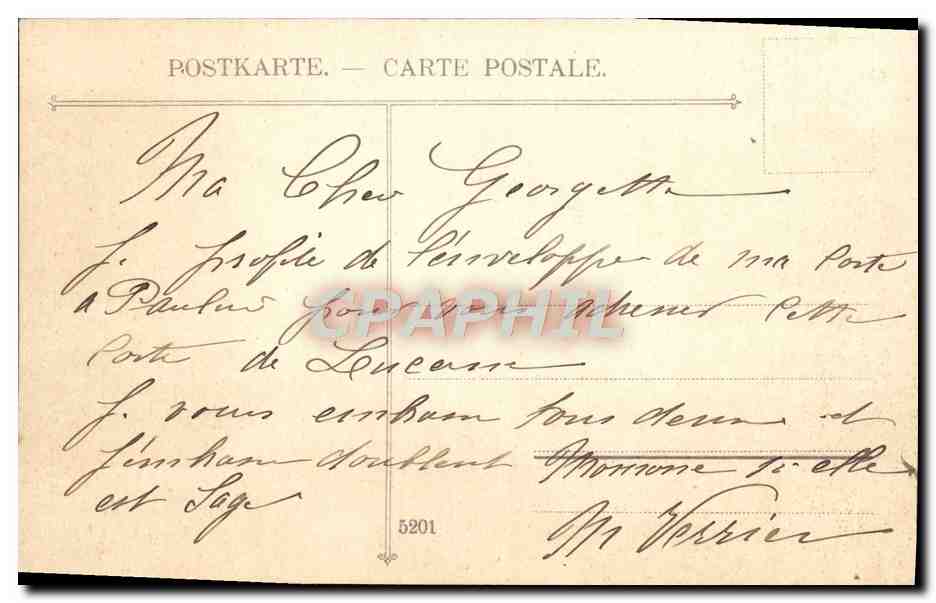 POSTKARTE. — CARTE POSTALE.
Ma Cher Georgette
Je profite de l'enveloppe de ma carte
a Pauline pour vous adresser cette
carte de
Je vous embrasse tous deux et
j'embrasse doublent Monsone si elle
est sage
M Verrier
5201
CPAPHIL